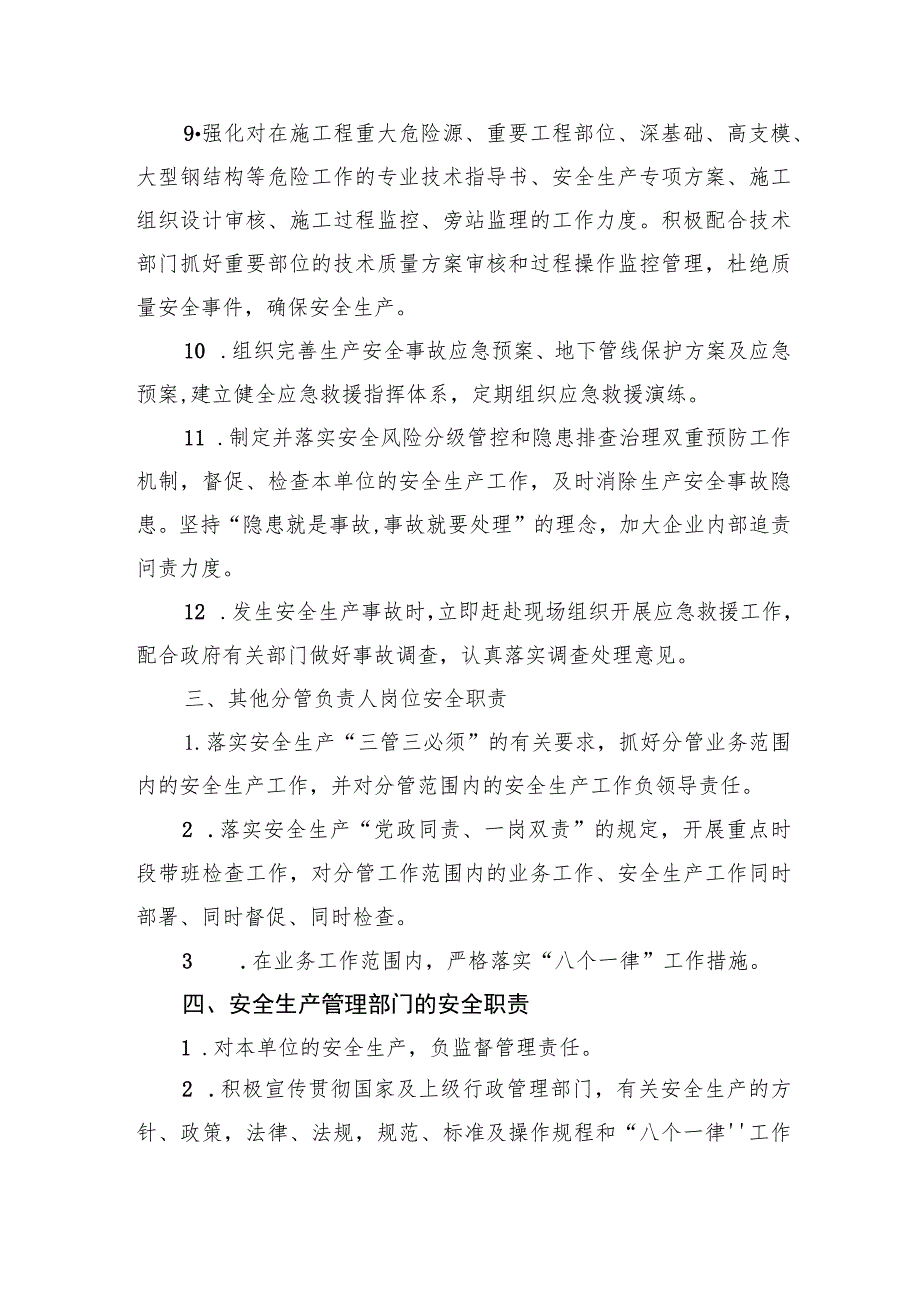 9•强化对在施工程重大危险源、重要工程部位、深基础、高支模、
大型钢结构等危险工作的专业技术指导书、安全生产专项方案、施工
组织设计审核、施工过程监控、旁站监理的工作力度。积极配合技术
部门抓好重要部位的技术质量方案审核和过程操作监控管理，杜绝质
量安全事件，确保安全生产。
10 .组织完善生产安全事故应急预案、地下管线保护方案及应急
预案,建立健全应急救援指挥体系，定期组织应急救援演练。
11 .制定并落实安全风险分级管控和隐患排查治理双重预防工作
机制，督促、检查本单位的安全生产工作，及时消除生产安全事故隐
患。坚持“隐患就是事故,事故就要处理”的理念，加大企业内部追责
问责力度。
12 .发生安全生产事故时,立即赶赴现场组织开展应急救援工作，
配合政府有关部门做好事故调查，认真落实调查处理意见。
三、其他分管负责人岗位安全职责
1.落实安全生产“三管三必须”的有关要求，抓好分管业务范围
内的安全生产工作，并对分管范围内的安全生产工作负领导责任。
2 .落实安全生产“党政同责、一岗双责”的规定，开展重点时
段带班检查工作，对分管工作范围内的业务工作、安全生产工作同时
部署、同时督促、同时检查。
3 .在业务工作范围内，严格落实“八个一律”工作措施。
四、安全生产管理部门的安全职责
1 .对本单位的安全生产，负监督管理责任。
2 .积极宣传贯彻国家及上级行政管理部门，有关安全生产的方
针、政策，法律、法规，规范、标准及操作规程和“八个一律''工作